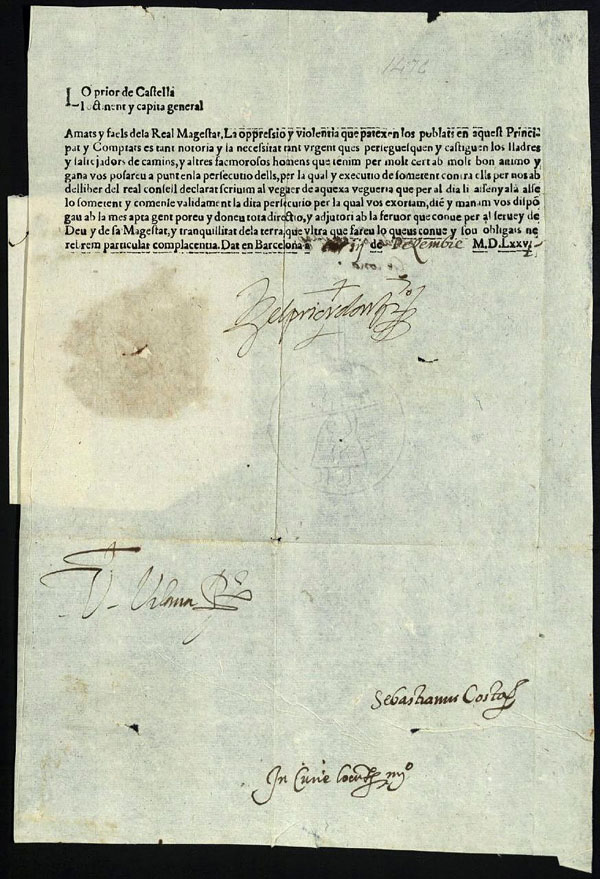 1476
LO prior de Castella
loctinent y capita general
Amats y faels dela Real Magestat, La oppressio y violentia que patexen los publats en aquest Princi=
pat y Comptats es tant notoria y la necessitat tant vrgent ques perseguesquen y castiguen los lladres
y saltejadors de camins, y altres facinorosos homens que tenim per molt cert ab molt bon animo y
gana vos posareu a punt en la persecutio dells, per la qual y executio de someten contra ells per nos ab
delliber del real consell declarat scriuim al veguer de aquexa vegueria que per al dia li assenyala alse
lo someten y comense validament la dita persecutio per la qual vos exortam, dié y manam vos dispō
gau ab la mes apta gent poreu y doneu tota directio, y adjutori ab la feruor que conue per al seruey de
Deu y de sa Magestat, y tranquillitat dela terra, que vltra que fareu lo queus conue y sou obligats ne
rebrem particular complacentia. Dat en Barcelona a de Dezembre M.D.Lxxvj
Vt Vilana Rs
Sebastianus Costa
In Curie locut. mo